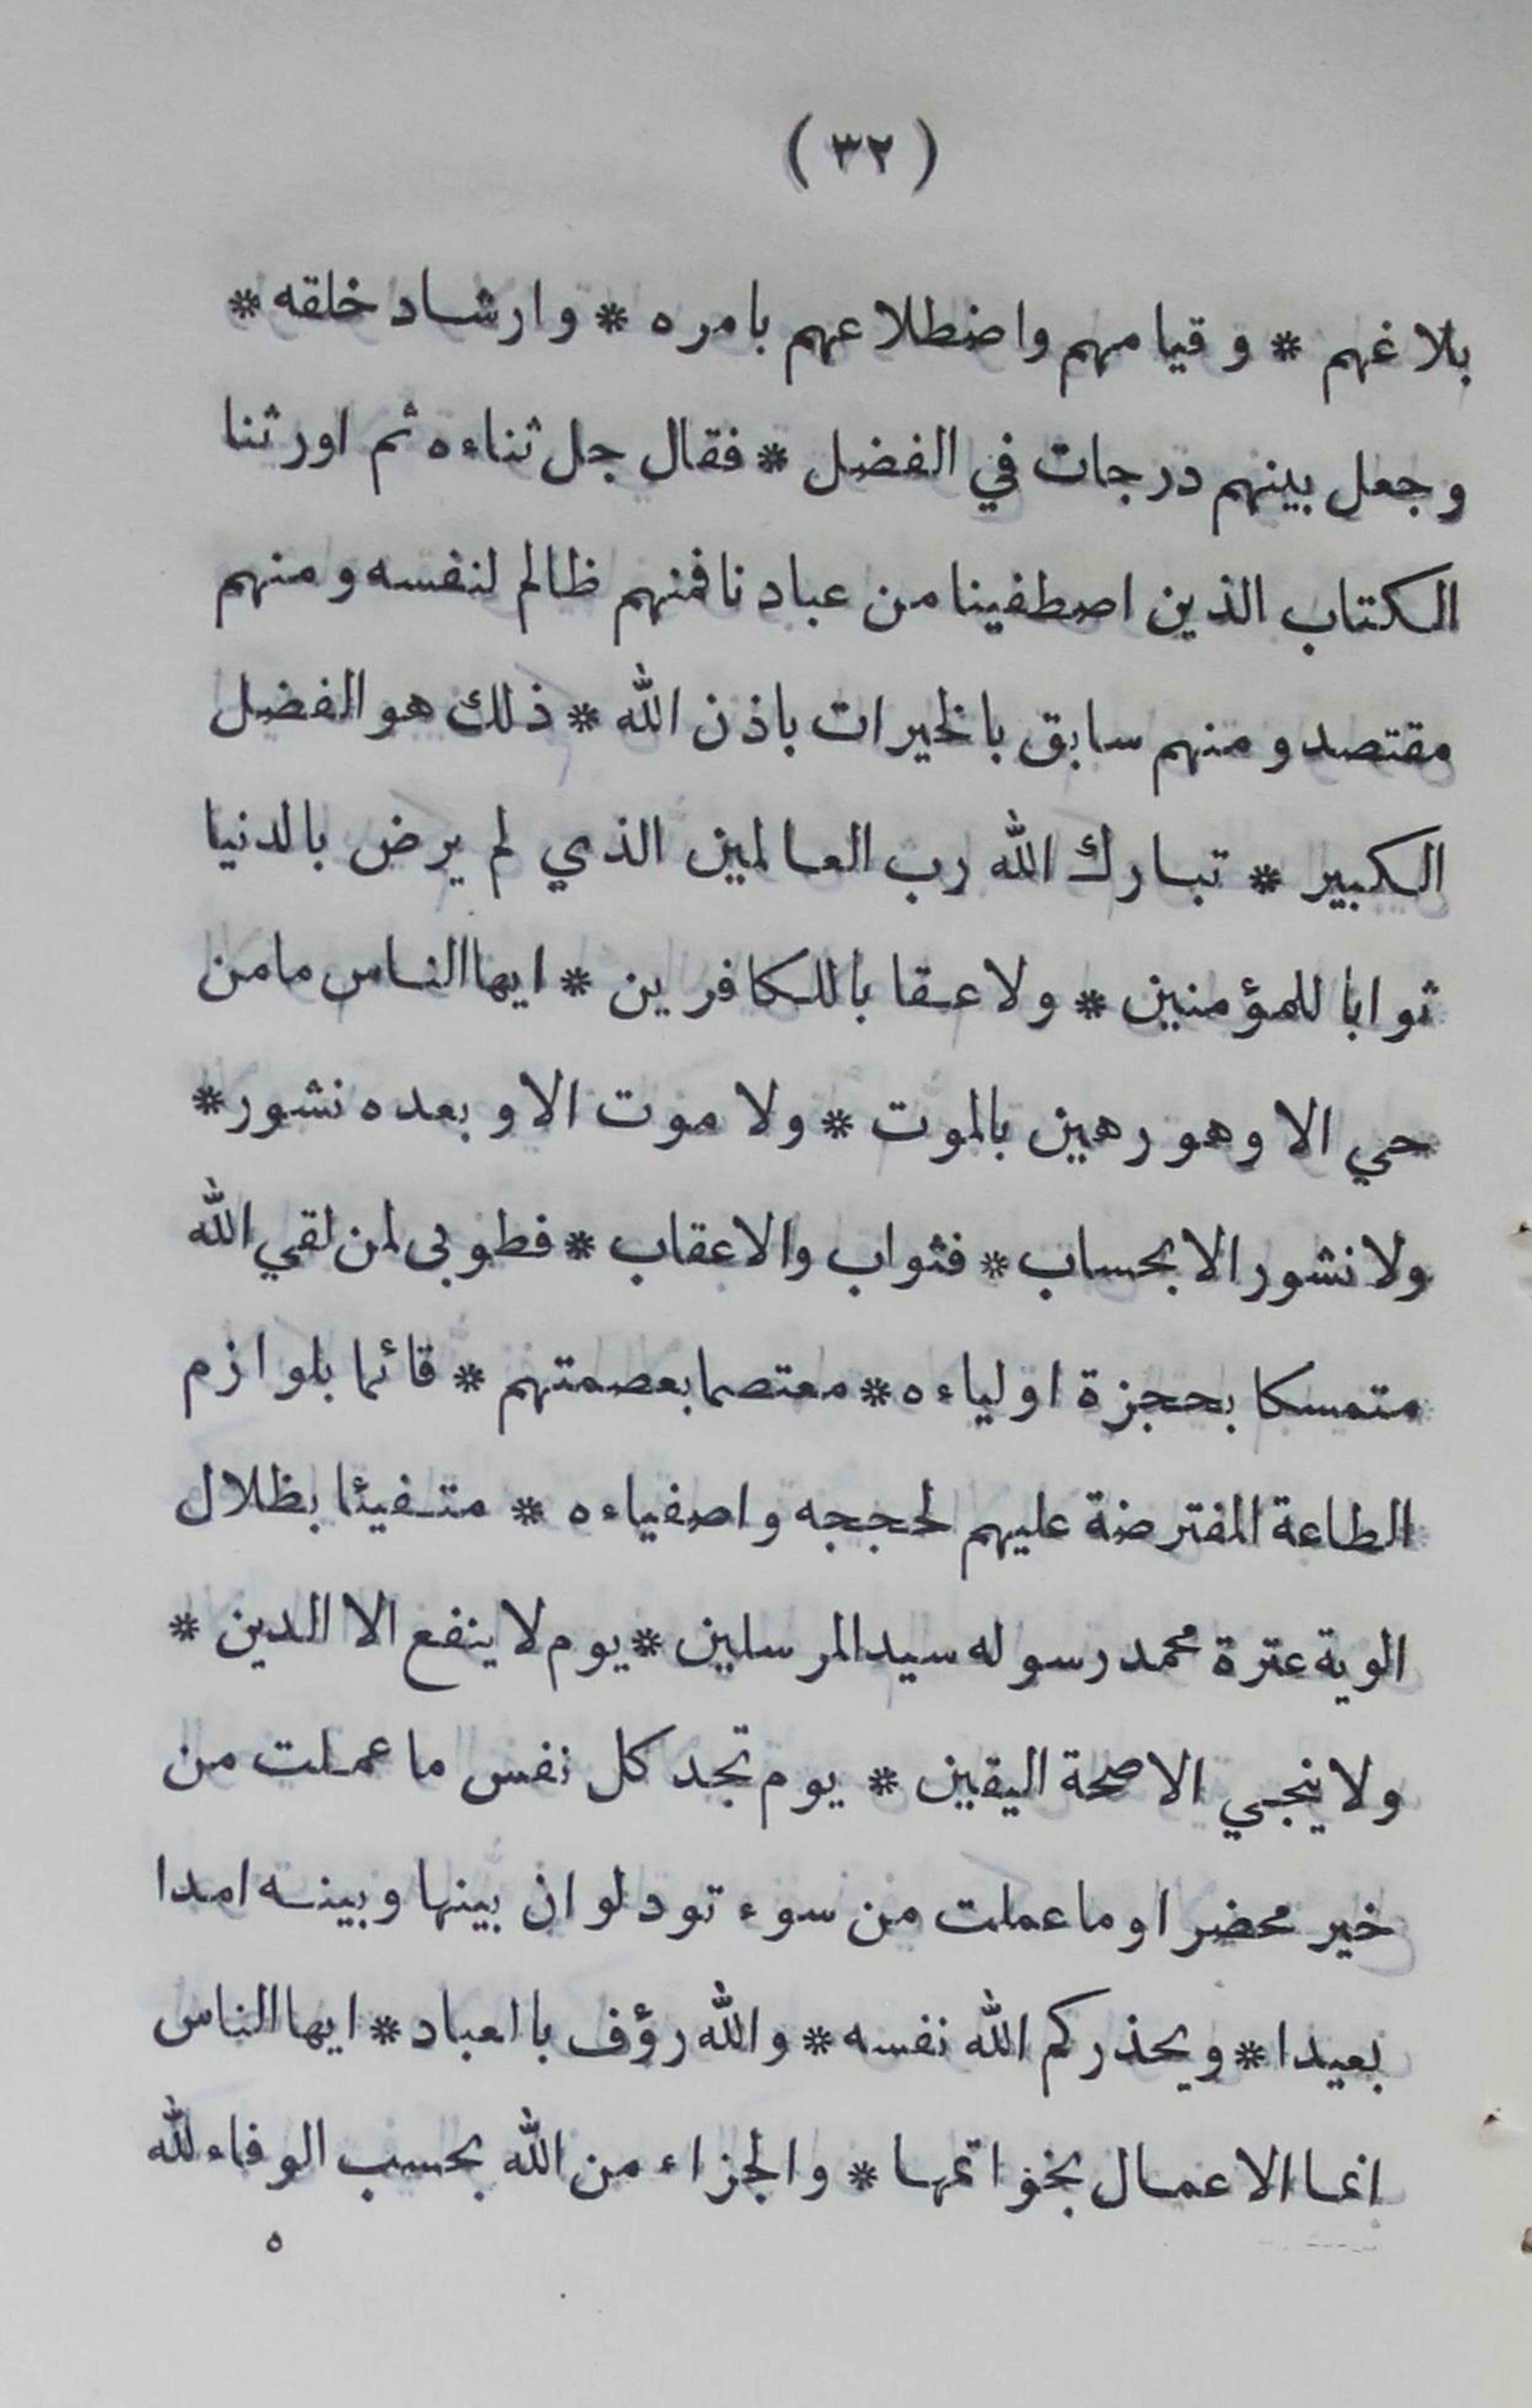 ( ٣٢ )
بلاغهم * وقيامهم واضطلاعهم بامره * وارشاد خلقه *
وجعل بينهم درجات في الفضل * فقال جل ثناءه ثم اورثنا
الكتاب الذين اصطفينا من عبادنا فمنهم ظالم لنفسه ومنهم
مقتصد ومنهم سابق بالخيرات باذن الله * ذلك هو الفضل
الكبير * تبارك الله رب العالمين الذي لم يرض بالدنيا
ثوابا للمؤمنين * ولا عقابا للكافرين * ايها الناس ما من
حي الا وهو رهين بالموت * ولا موت الا وبعده نشور *
ولا نشور الا بحساب * فثواب والاعقاب * فطوبى لمن لقي الله
متمسكا بحجزة اولياءه * معتصما بعصمتهم * قائما بلوازم
الطاعة المفترضة عليهم لحججه واصفياءه * متفيئا بظلال
الوية عترة محمد رسوله سيد المرسلين * يوم لا ينفع الا الدين *
ولا ينجي الا صحة اليقين * يوم تجد كل نفس ما عملت من
خير محضرا وما عملت من سوء تود لو ان بينها وبينه امدا
بعيدا * ويحذركم الله نفسه * والله رؤف بالعباد * ايها الناس
انما الاعمال بخواتمها * والجزاء من الله بحسب الوفاء لله
٥